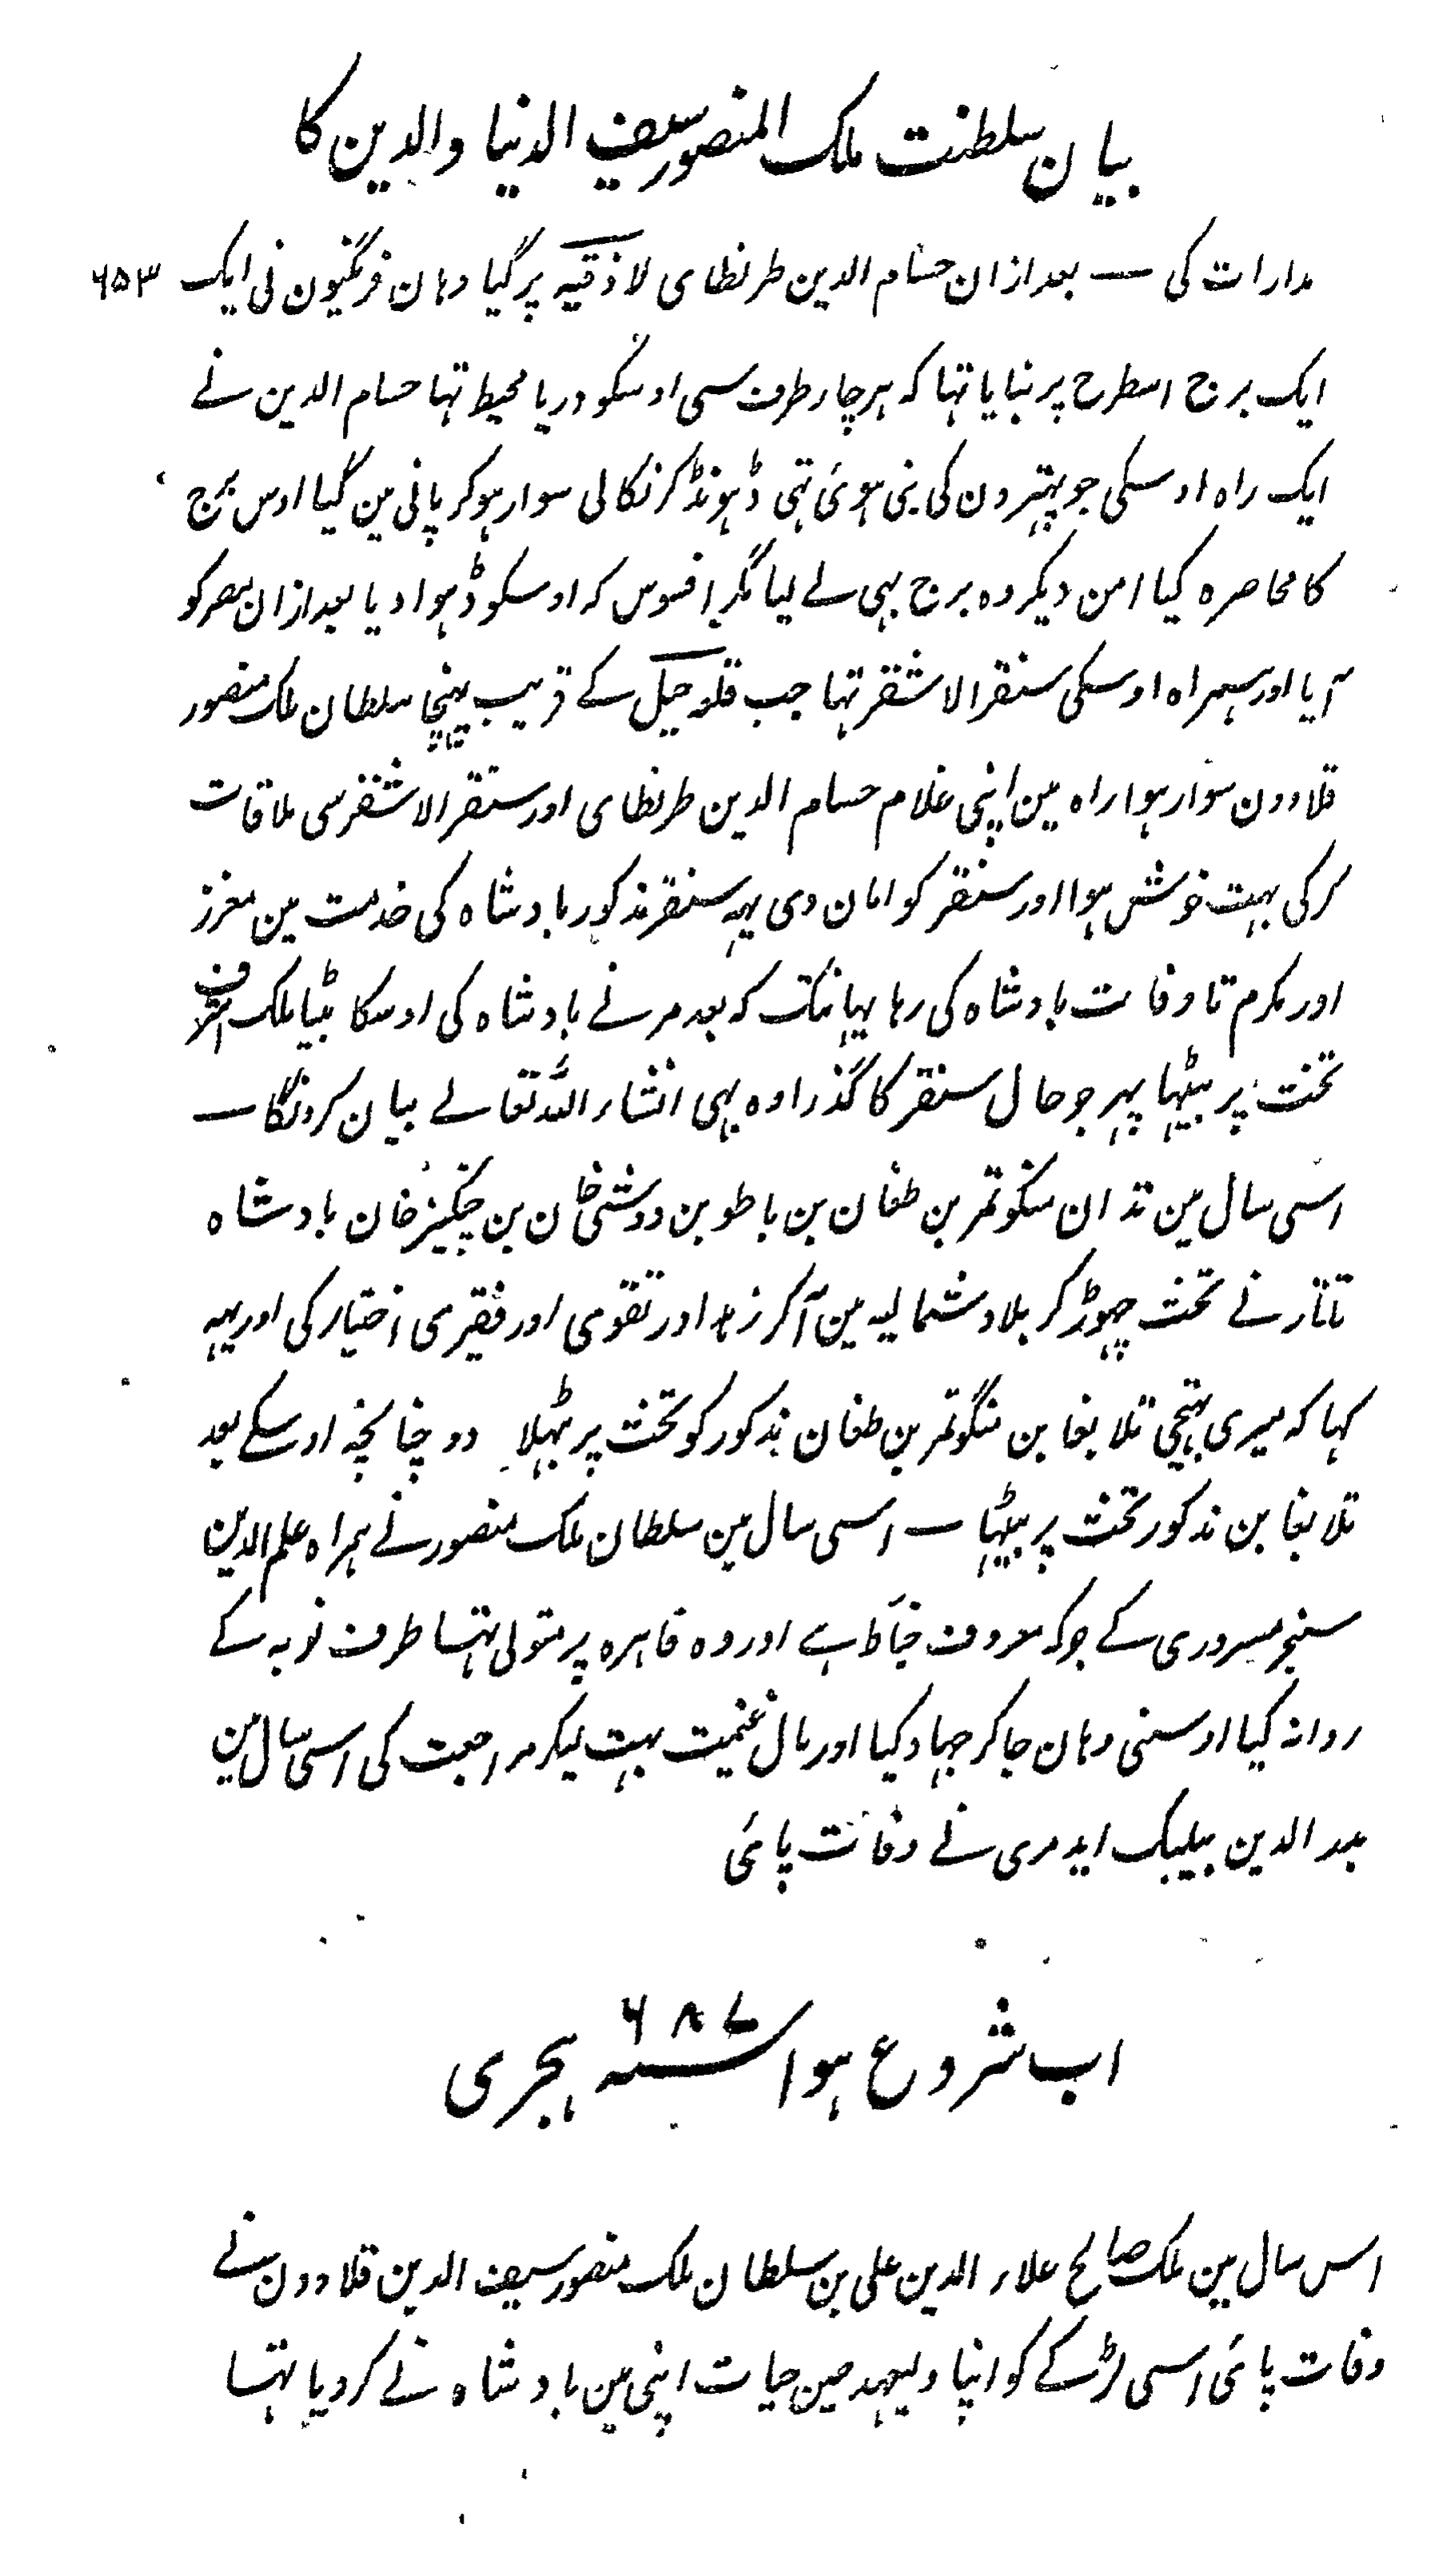 بیان سلطنت ملک المنصور سیف الدنیا والدین کا
مدارات کی — بعد ازان حسام الدین طرنطای لاذقیہ پر گیا وہان فرنگیون نی ایک ۶۵۳
ایک برج اسطرح پر بنایا تہا کہ ہر چار طرف سی اوسکو دریا محیط تہا حسام الدین نے
ایک راہ اوسکی جو پتہرون کی بنی ہوئی تہی ڈہونڈ کر نکالی سوار ہو کر پانی مین گیا اوس برج
کا محاصرہ کیا امن دیکر وہ برج بہی لے لیا مگر افسوس کہ اوسکو ڈہوا دیا بعد ازان مصر کو
آیا اور ہمراہ اوسکی سنقر الاشقر تہا جب قلعہ جبل کے قریب پہنچا سلطان ملک منصور
قلاوون سوار ہوا راہ مین اپنی غلام حسام الدین طرنطای اور سنقر الاشقر سی ملاقات
کر کی بہت خوش ہوا اور سنقر کو امان دی یہہ سنقر مذکور بادشاہ کی خدمت مین معزز
اور مکرم تا وفات بادشاہ کی رہا یہانتک کہ بعد مرنے بادشاہ کی اوسکا بیٹا ملک اشرف
تخت پر بیٹہا پہر جو حال سنقر کا گذرا وہ بہی انشاء اللہ تعالے بیان کرونگا —
اسی سال مین تدان منکوتمر بن طغان بن باطو بن دوشی خان بن چنگیز خان بادشاہ
تاتار نے تخت چہوڑ کر بلاد شمالیہ مین آکر زہد اور تقوی اور فقیری اختیار کی اور یہہ
کہا کہ میری بہتیجی تلابغا بن منگوتمر بن طغان مذکور کو تخت پر بٹہلا دو چنانچہ اوسکے بعد
تلابغا بن مذکور تخت پر بیٹہا — اسی سال مین سلطان ملک منصور نے ہمراہ علم الدین
سنجر مسروری کے جو کہ معروف خیاط ہے اور وہ قاہرہ پر متولی تہا طرف نوبہ کے
روانہ کیا اوسنی وہان جا کر جہاد کیا اور مال غنیمت بہت لیکر مراجعت کی اسی سال مین
بدر الدین بیلبک ایدمری نے وفات پائی
اب شروع ہوا سنہ ۶۸۷ ہجری
اس سال مین ملک صالح علاء الدین علی بن سلطان ملک منصور سیف الدین قلاوون نے
وفات پائی اسی لڑکے کو اپنا ولیعہد حین حیات اپنی مین بادشاہ نے کر دیا تہا